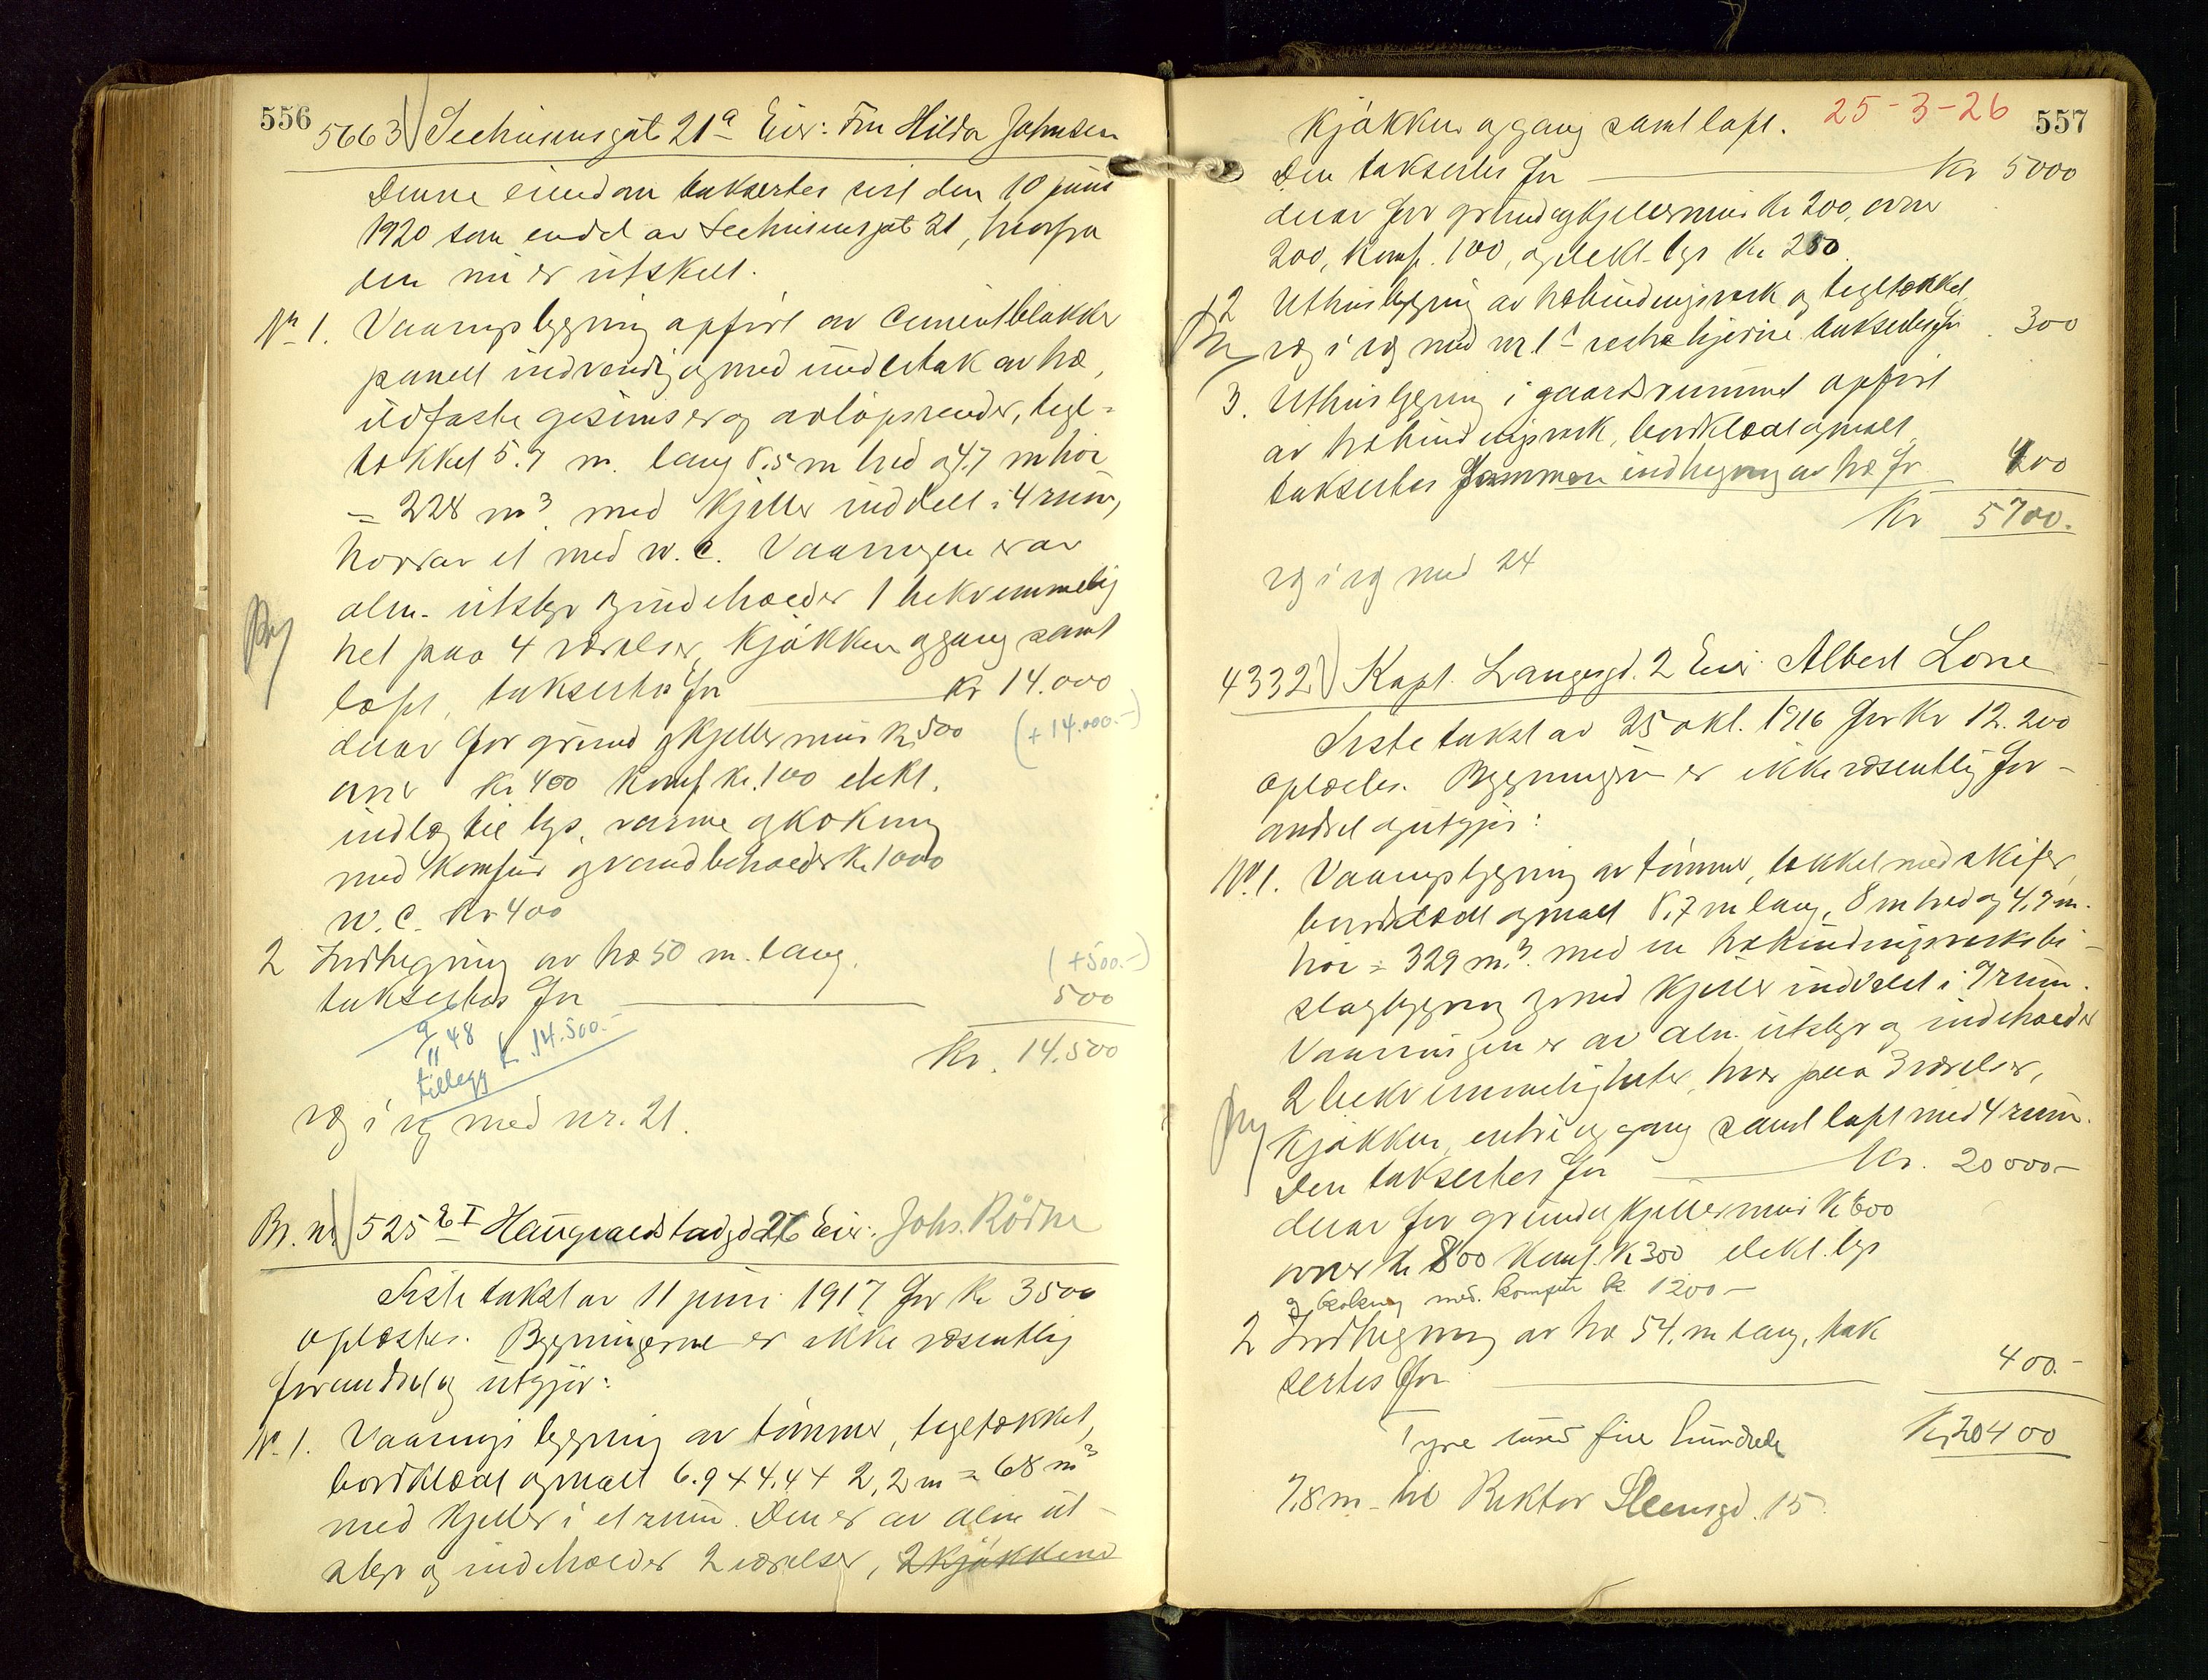 556
5663 Seehusensgát 21a Eier: Fru Hilda Johnsen
Denne eiendom taksertes sist den 10 juni
1920 som endel av Seehusensgát 21, hvorfra
den nu er utskilt.
Nr 1. Vaaningsbygning opført av cementblokker
panelt indvendig og med undertak av træ,
ildfaste gesimser og avløpsrender, tegl-
tækket 5.7 m. lang 8.5 m bred og 4.7 m høi
= 228 m³. med kjeller inddelt i 4 rum,
hvorav et med w.c. Vaaningen er av
alm. utstyr og indeholder 1 bekvemmelig
het paa 4 værelser, kjøkken og gang samt
loft, taksertes for Kr 14.000
derav for grund og kjellermur Kr. 500 (+14.000.-)
ovner Kr 400 Komf. Kr. 100 elekt.
indlæg til lys, varme og kokning
med komfur og vandbeholder Kr. 1000
w.c. Kr 400
2 Indhegning av træ 50 m. lang. (+500.-)
taksertes for 500
9/11 48
tillegg kr. 14.500.-
Kr. 14.500
væg i væg med nr. 21.
Br. nr. 525 b I Haugvaldstadgd 26 Eier: Johs. Rödne
Siste takst av 11 juni 1917 for Kr 3500
oplæstes. Bygningerne er ikke væsentlig
forandret og utgjør:
Nr. 1. Vaanings bygning av tømmer, tegltækket,
bordklædt og malt 6.9 + 4.4 + 2,2 m = 68 m³
med kjeller i et rum. Den er av alm ut-
styr og indeholder 2 værelser, 2 kjøkkener
kjøkken og gang samt loft. 25-3-26 557
Den taksertes for Kr 5000
derav for grund og kjellermur Kr 200, ovner
200, Komf. 100, og elekt. lys Kr 250.
2 Uthusbygning av træbindingsverk og tegltækket
væg i væg med nr 1s vestre hjørne taksertes for 300
3. Uthusbygning i gaardsrummet opført
av træbindingsverk, bordklædt og malt
taksertes sammen indhegning av træ for 400
Kr 5700.
væg i væg med 24
4332 Kapt. Langesgd. 2 Eier: Albert Lone
Siste takst av 25 okt. 1916 for Kr 12.200
oplæstes. Bygningen er ikke væsentlig for-
andret og utgjør:
Nr. 1. Vaaningsbygning av tømmer, tækket med skifer,
bordklædt og malt 8,7 m lang, 8 m bred og 4,7 m.
høi = 329 m.³. med en træbindingsverksbi-
slagbygning og med kjeller inddelt i 7 rum.
Vaaningen er av alm. utstyr og indeholder
2 bekvemmeligheter, hver paa 3 værelser,
kjøkken, entré og gang samt loft med 4 rum.
Den taksertes for Kr. 20000-
derav for grund og kjellermur Kr 600
ovner Kr 800 Komf. Kr 300 elekt. lys
og kokning med komfur kr 1200-
2 Indhegning av træ 54, m lang, tak
sertes for 400.-
Tyve tusen fire hundrede Kr. 20400
7,8 m. til Rektor Steensgd. 15.